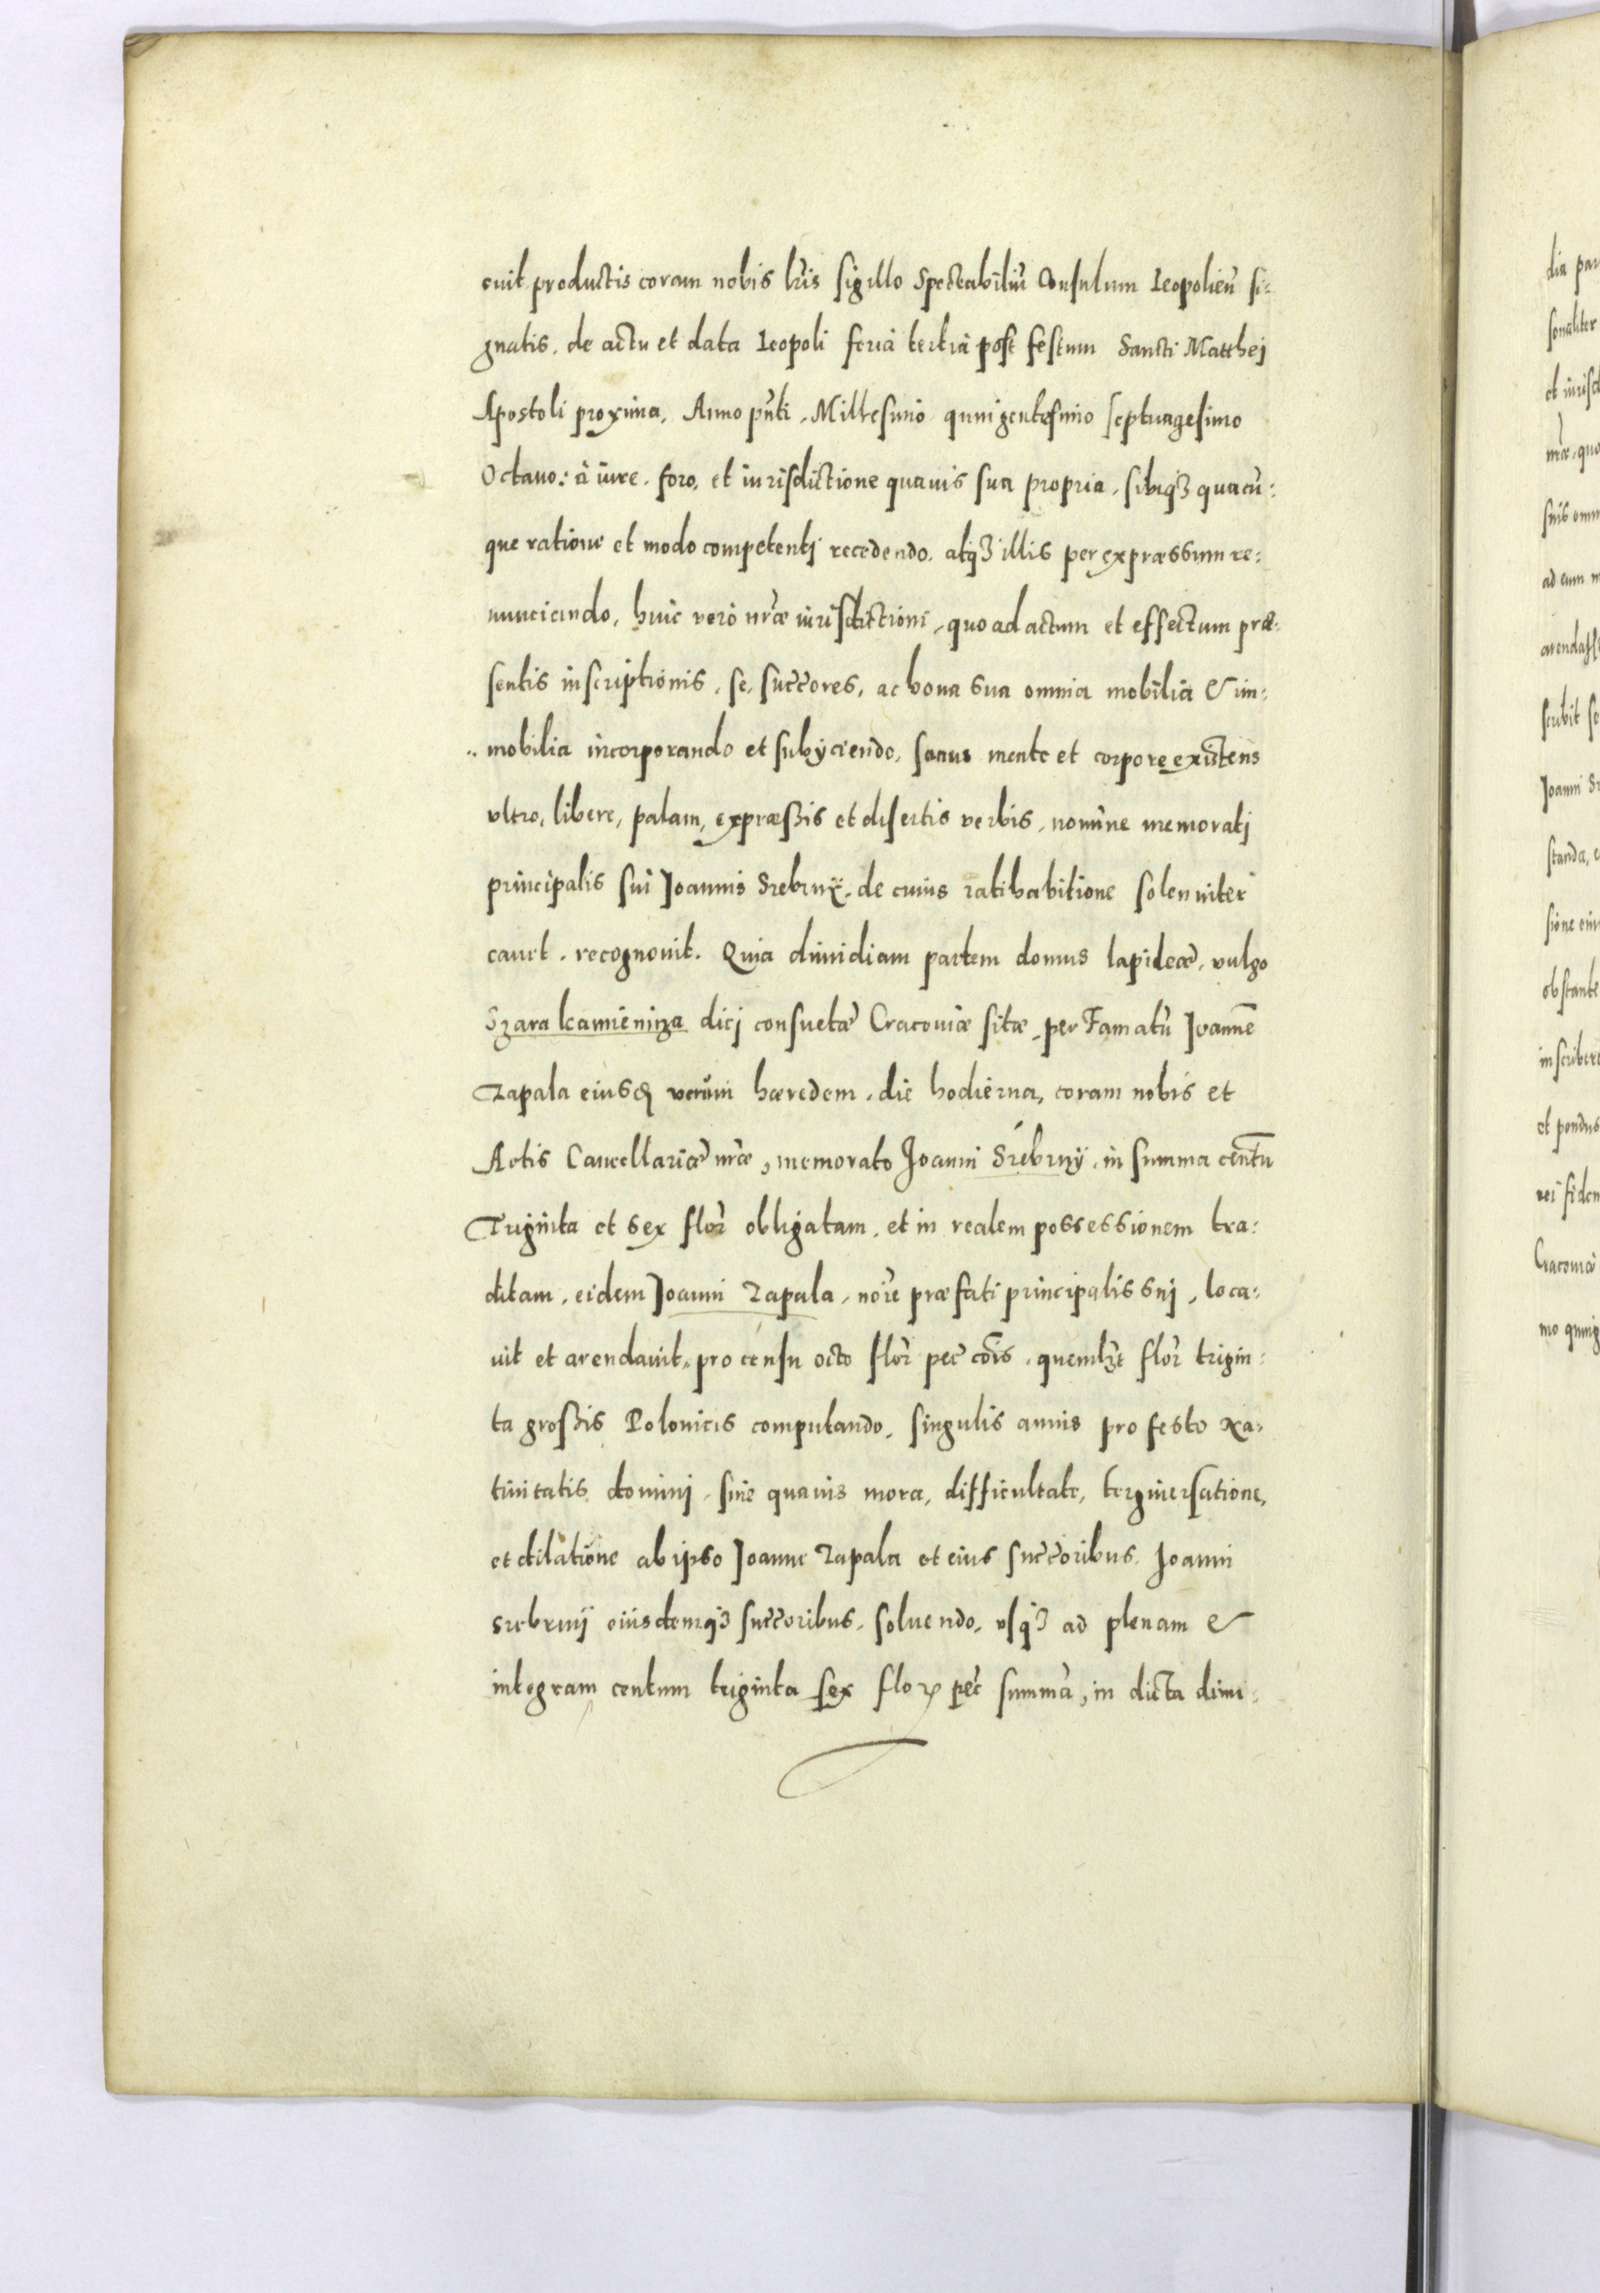 cuit productis coram nobis lris sigillo Spectabiliu Consulum Leopolien si-
gnatis. de actu et data Leopoli feria tertia post festum Sancti Matthej
Apostoli proxima, Anno pnti. Millesimo quingentesimo septuagesimo
Octauo: à iure. foro, et iurisdictione quauis sua propria, sibiq3 quacu-
que ratione et modo competenti recedendo. atq3 illis per expræssum re-
nunciando, huic vero nræ iurisdictioni, quo ad actum et effectum præ-
sentis inscriptionis, se, succores, ac bona sua omnia mobilia & im-
mobilia incorporando et subÿciendo, sanus mente et corpore existens
vltro, libere, palam, expræssis et disertis verbis, nomine memoratj
principalis sui Joannis Srebrnÿ. de cuius ratihabitione solenniter
cauit. recognouit. Quia dimidiam partem domus lapideæ, vulgo
Szara kamienicza dicj consuetæ Cracouiæ sitæ, per Famatu Joanne
Zapala eiusd verum hæredem. die hodierna, coram nobis et
Actis Cancellariæ nræ, memorato Joanni Srebrnÿ. in summa centu
Triginta et sex flor obligatam. et in realem possessionem tra-
ditam, eidem Joanni Zapala, noie præfati principalis suj, loca-
uit et arendauit. pro censu octo flor pec cois. quemlzt flor trigin-
ta grossis Polonicis computando, singulis annis pro festo Na-
tiuitatis dominj, sine quauis mora, difficultate, tergiuersatione,
et dilatione ab ipso Joanne Zapala et eius succoribus. Joanni
Srebrnij eiusdemq3 succoribus. soluendo, vsq3 ad plenam &
integram centum triginta sex flor pec summa, in dicta dimi-
dia par
sonaliter
et
quo
suis
ad eum
scribit
Joanni
sione
obstante
inscribere
et pondus
rei fidem
Cracouiæ